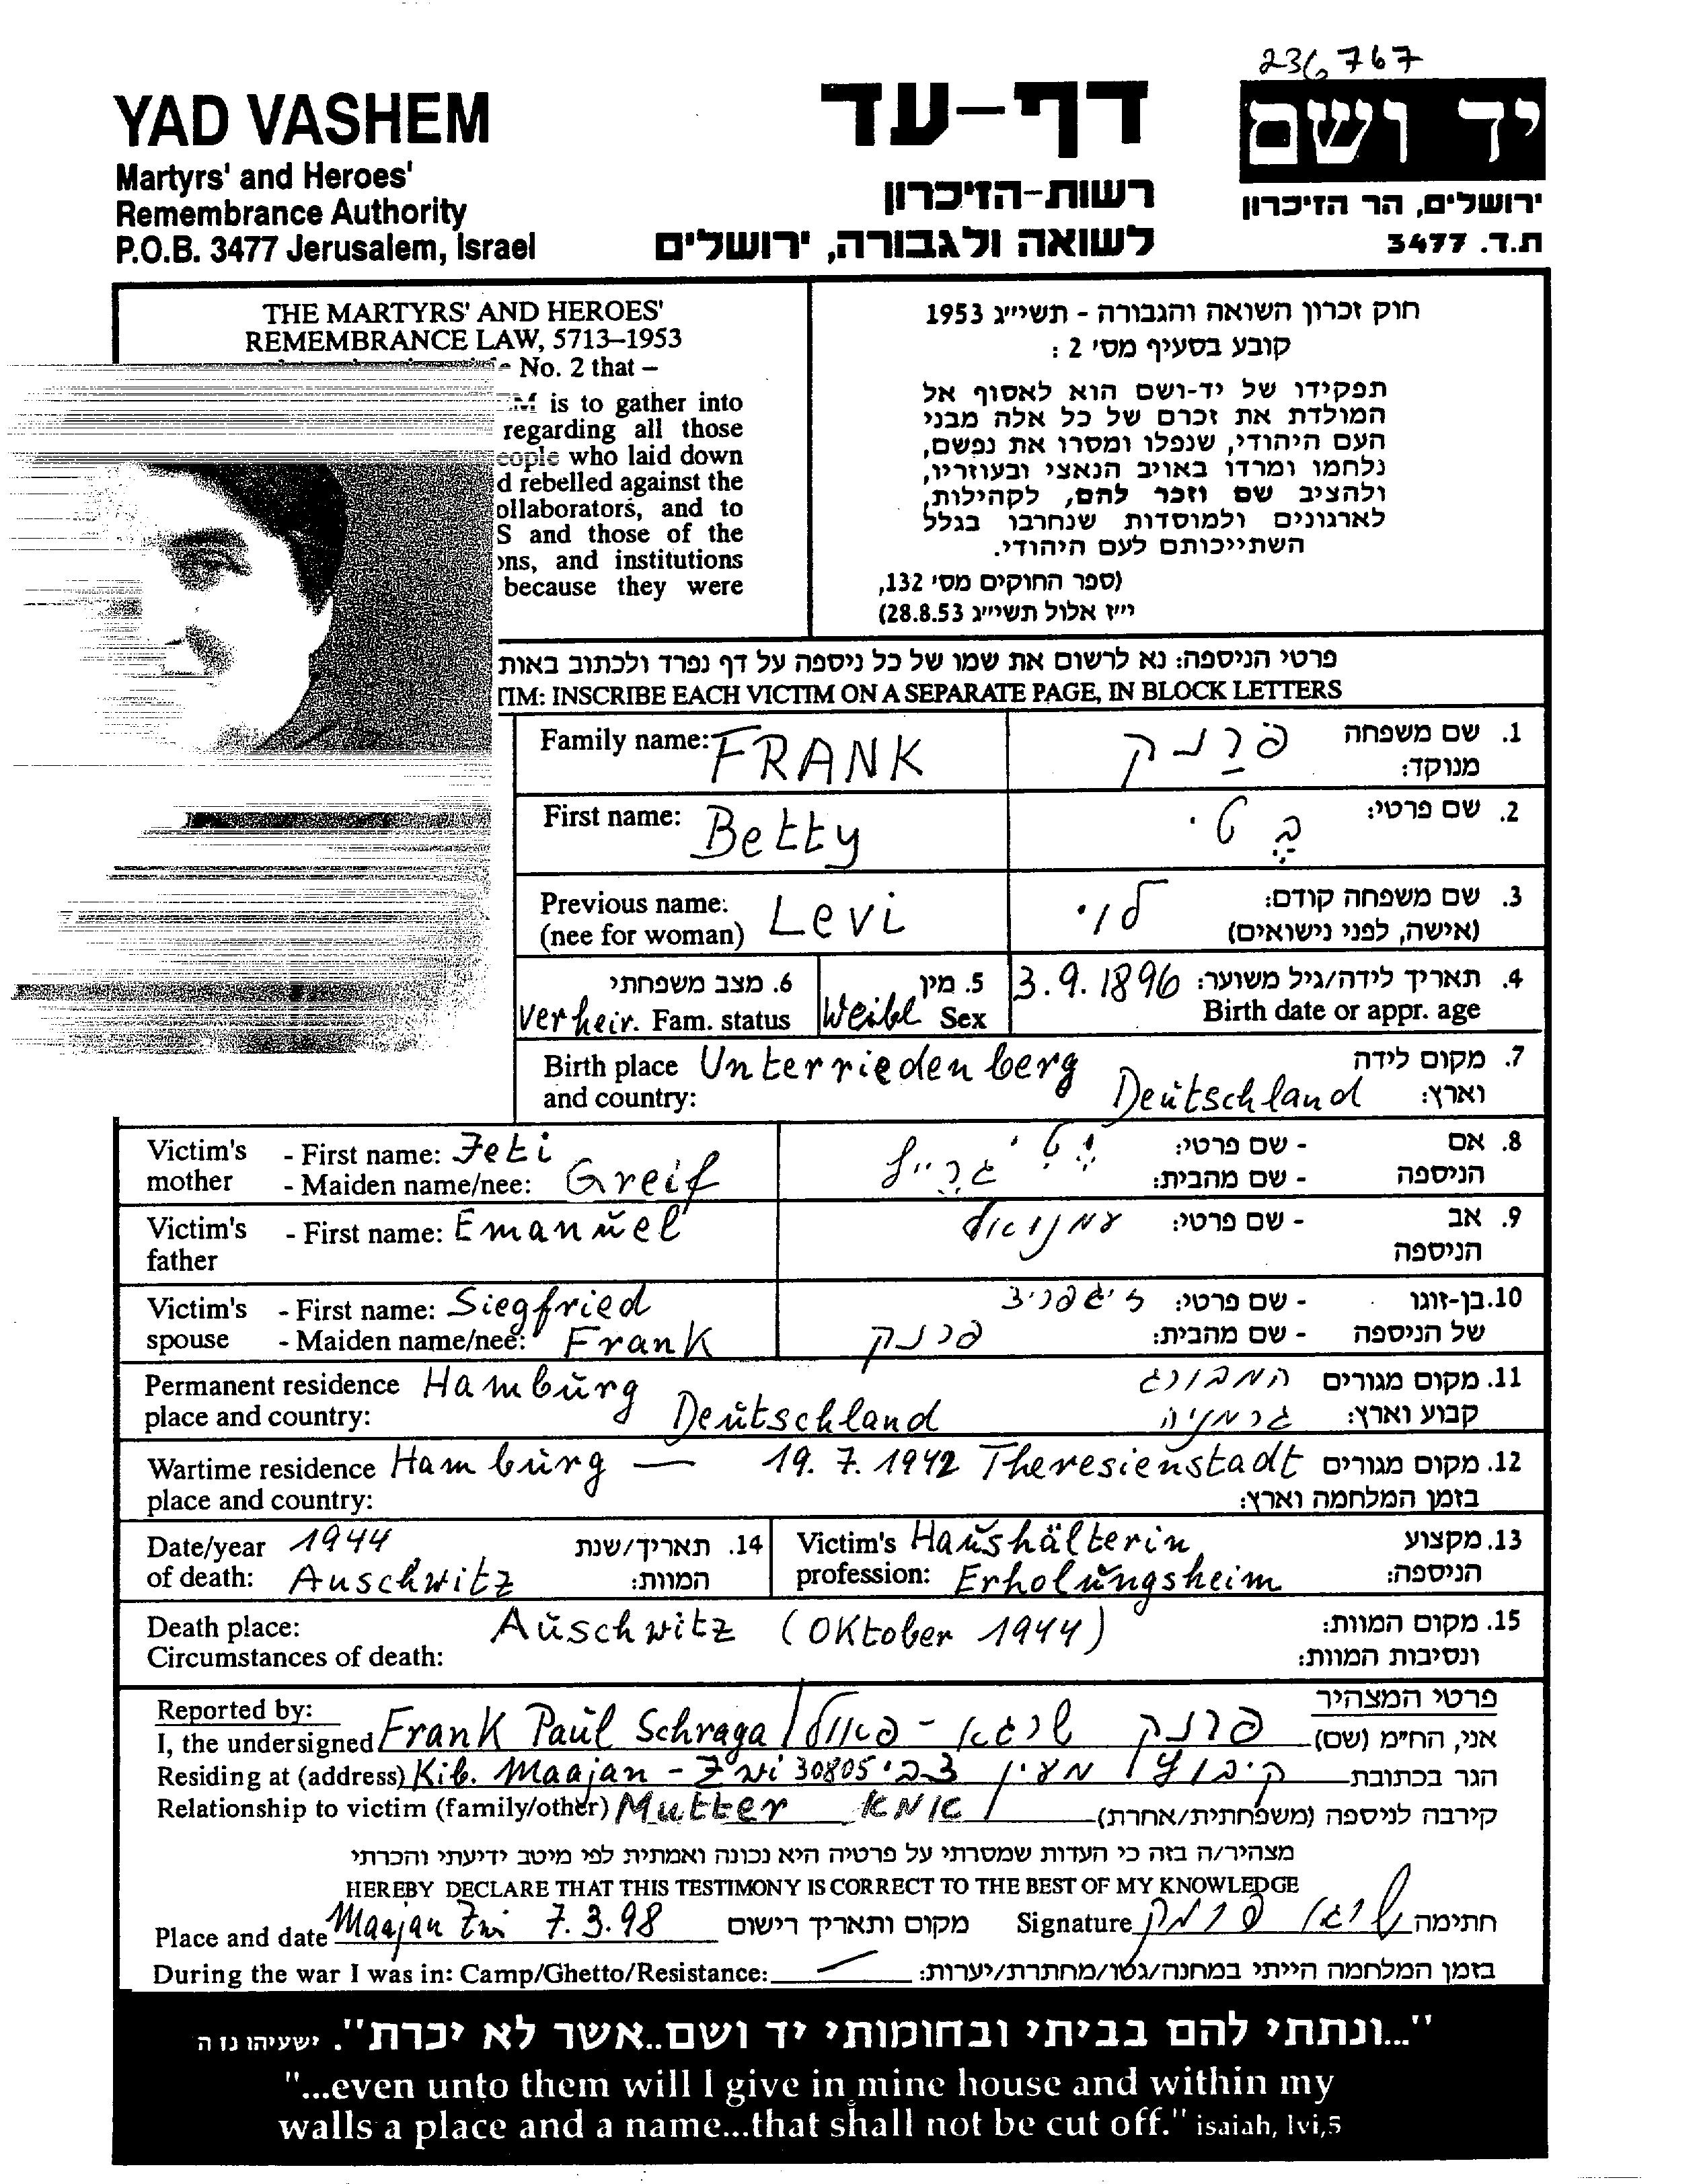 236767
YAD VASHEM
Martyrs' and Heroes'
Remembrance Authority
P.O.B. 3477 Jerusalem, Israel
דף-עד
רשות-הזיכרון
לשואה ולגבורה, ירושלים
יד ושם
ירושלים, הר הזיכרון
ת.ד. 3477
THE MARTYRS' AND HEROES'
REMEMBRANCE LAW, 5713–1953
No. 2 that –
is to gather into
regarding all those
who laid down
d rebelled against the
ollaborators, and to
S and those of the
ns, and institutions
because they were
חוק זכרון השואה והגבורה - תשי״ג 1953
קובע בסעיף מס׳ 2 :
תפקידו של יד-ושם הוא לאסוף אל
המולדת את זכרם של כל אלה מבני
העם היהודי, שנפלו ומסרו את נפשם,
נלחמו ומרדו באויב הנאצי ובעוזריו,
ולהציב שם וזכר להם, לקהילות,
לארגונים ולמוסדות שנחרבו בגלל
השתייכותם לעם היהודי.
(ספר החוקים מס׳ 132,
י״ז אלול תשי״ג 28.8.53)
פרטי הניספה: נא לרשום את שמו של כל ניספה על דף נפרד ולכתוב באות
TIM: INSCRIBE EACH VICTIM ON A SEPARATE PAGE, IN BLOCK LETTERS
Family name: FRANK פרַנק 1. שם משפחה
מנוקד:
First name: Betty בֶטִי 2. שם פרטי:
Previous name: Levi לוי 3. שם משפחה קודם:
(nee for woman) (אישה, לפני נישואים)
6. מצב משפחתי 5. מין 3.9.1896 4. תאריך לידה/גיל משוער:
verheir. Fam. status Weibl Sex Birth date or appr. age
Birth place Unterriedenberg 7. מקום לידה
and country: Deutschland וארץ:
Victim's - First name: Jeti יֶטִי - שם פרטי: 8. אם
mother - Maiden name/nee: Greif גרייף - שם מהבית: הניספה
Victim's - First name: Emanuel עמנואל - שם פרטי: 9. אב
father הניספה
Victim's - First name: Siegfried זיגפריד - שם פרטי: 10. בן-זוגו
spouse - Maiden name/nee: Frank פרנק - שם מהבית: של הניספה
Permanent residence Hamburg המבורג 11. מקום מגורים
place and country: Deutschland גרמניה קבוע וארץ:
Wartime residence Hamburg — 19.7.1942 Theresienstadt 12. מקום מגורים
place and country: בזמן המלחמה וארץ:
Date/year 1944 14. תאריך/שנת Victim's Haushälterin 13. מקצוע
of death: Auschwitz המוות: profession: Erholungsheim הניספה:
Death place: Auschwitz (Oktober 1944) 15. מקום המוות:
Circumstances of death: ונסיבות המוות:
Reported by: פרטי המצהיר
I, the undersigned Frank Paul Schraga / פרנק שרגא - פאול אני, הח״מ (שם)
Residing at (address) Kib. Maajan - Zwi 30805 קיבוץ מעין צבי הגר בכתובת
Relationship to victim (family/other) Mutter אמא קירבה לניספה (משפחתית/אחרת)
מצהיר/ה בזה כי העדות שמסרתי על פרטיה היא נכונה ואמתית לפי מיטב ידיעתי והכרתי
HEREBY DECLARE THAT THIS TESTIMONY IS CORRECT TO THE BEST OF MY KNOWLEDGE
Place and date Maajan Zwi 7.3.98 מקום ותאריך רישום Signature שרגא פרנק חתימה
During the war I was in: Camp/Ghetto/Resistance: — בזמן המלחמה הייתי במחנה/גטו/מחתרת/יערות:
"...ונתתי להם בביתי ובחומותי יד ושם..אשר לא יכרת". ישעיהו נו ה
"...even unto them will I give in mine house and within my
walls a place and a name...that shall not be cut off." isaiah, lvi,5